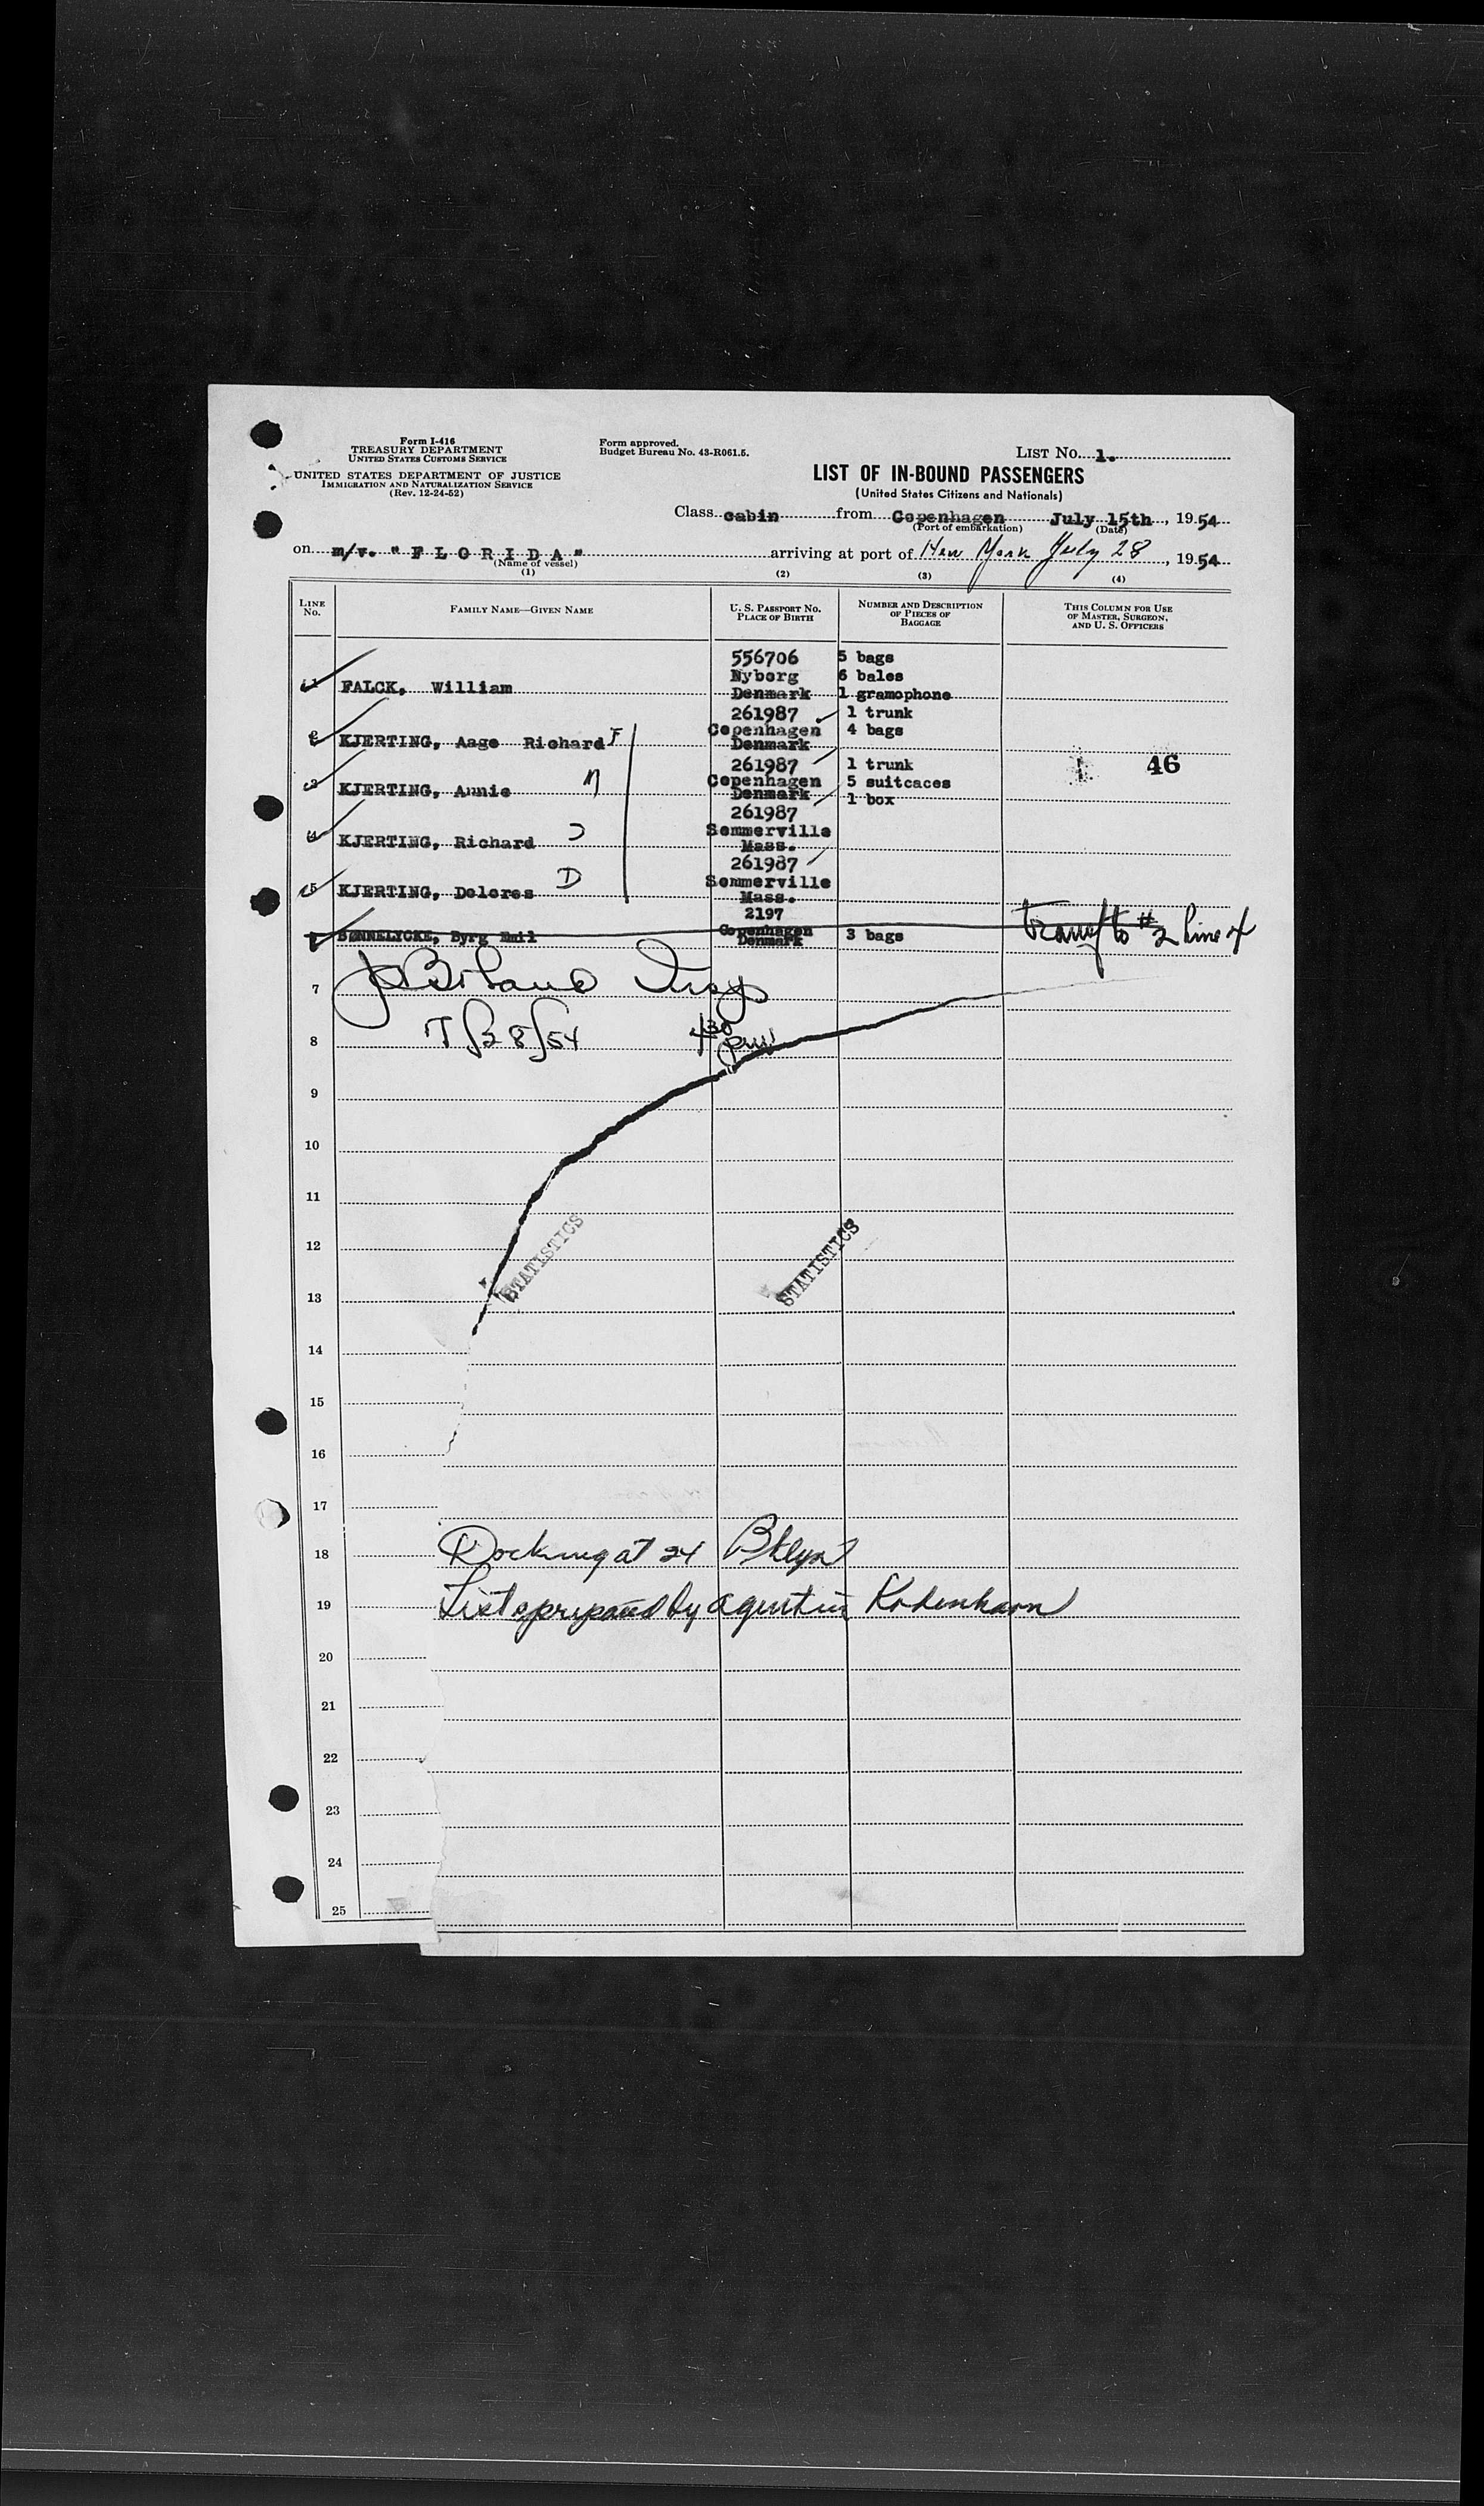 Form I-416
TREASURY DEPARTMENT
UNITED STATES CUSTOMS SERVICE
UNITED STATES DEPARTMENT OF JUSTICE
IMMIGRATION AND NATURALIZATION SERVICE
(Rev. 12-24-52)
Form approved.
Budget Bureau No. 43-R061.5.
LIST No. 1.
LIST OF IN-BOUND PASSENGERS
(United States Citizens and Nationals)
Class cabin from Copenhagen July 15th, 1954
(Port of embarkation) (Date)
on m/v. "FLORIDA" arriving at port of New York July 28, 1954
(Name of vessel)
(1) (2) (3) (4)
LINE No. FAMILY NAME—GIVEN NAME U. S. PASSPORT NO. PLACE OF BIRTH NUMBER AND DESCRIPTION OF PIECES OF BAGGAGE THIS COLUMN FOR USE OF MASTER, SURGEON, AND U. S. OFFICERS
556706 5 bags
Nyborg 6 bales
1 FALCK, William Denmark 1 gramophone
261987 1 trunk
Copenhagen 4 bags
2 KJERTING, Aage Richard F Denmark
261987 1 trunk 46
Copenhagen 5 suitcaces
3 KJERTING, Annie M Denmark 1 box
261987
Sommerville
4 KJERTING, Richard Mass.
261987
Sommerville
5 KJERTING, Dolores D Mass.
2197
Copenhagen
BØNNELYCKE, Byrg Emil Denmark 3 bags Transf to #2 line
7
8 7/28/54 4 30 pm
9
10
11
12
STATISTICS STATISTICS
13
14
15
16
17
18 Docking at 24 Bklyn
19 Lists prepared by agent in Kobenhavn
20
21
22
23
24
25